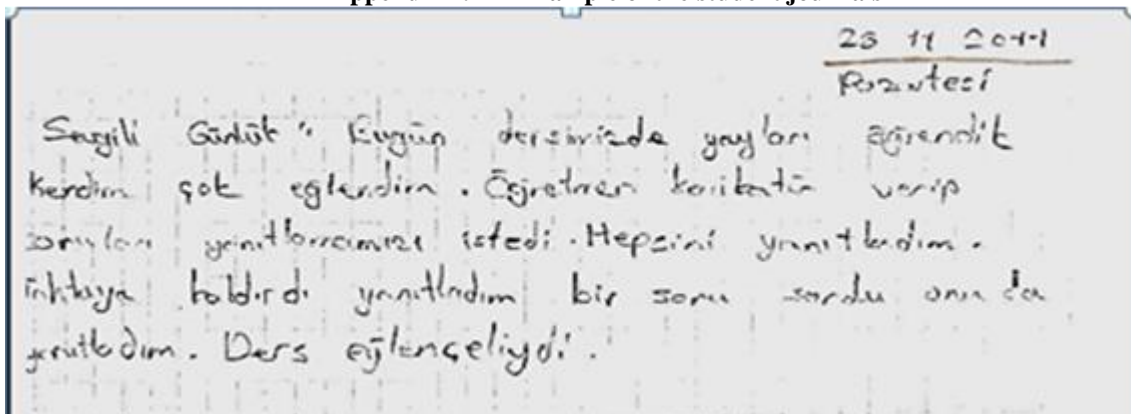 23 11 2011
Pazartesi
Sevgili Günlük" Bugün dersimizde yayları öğrendik
Kendim çok eğlendim. Öğretmen karikatür verip
soruları yanıtlamamızı istedi. Hepsini yanıtladım.
tahtaya kaldırdı yanıtladım bir soru sordu onu da
yanıtladım. Ders eğlenceliydi.